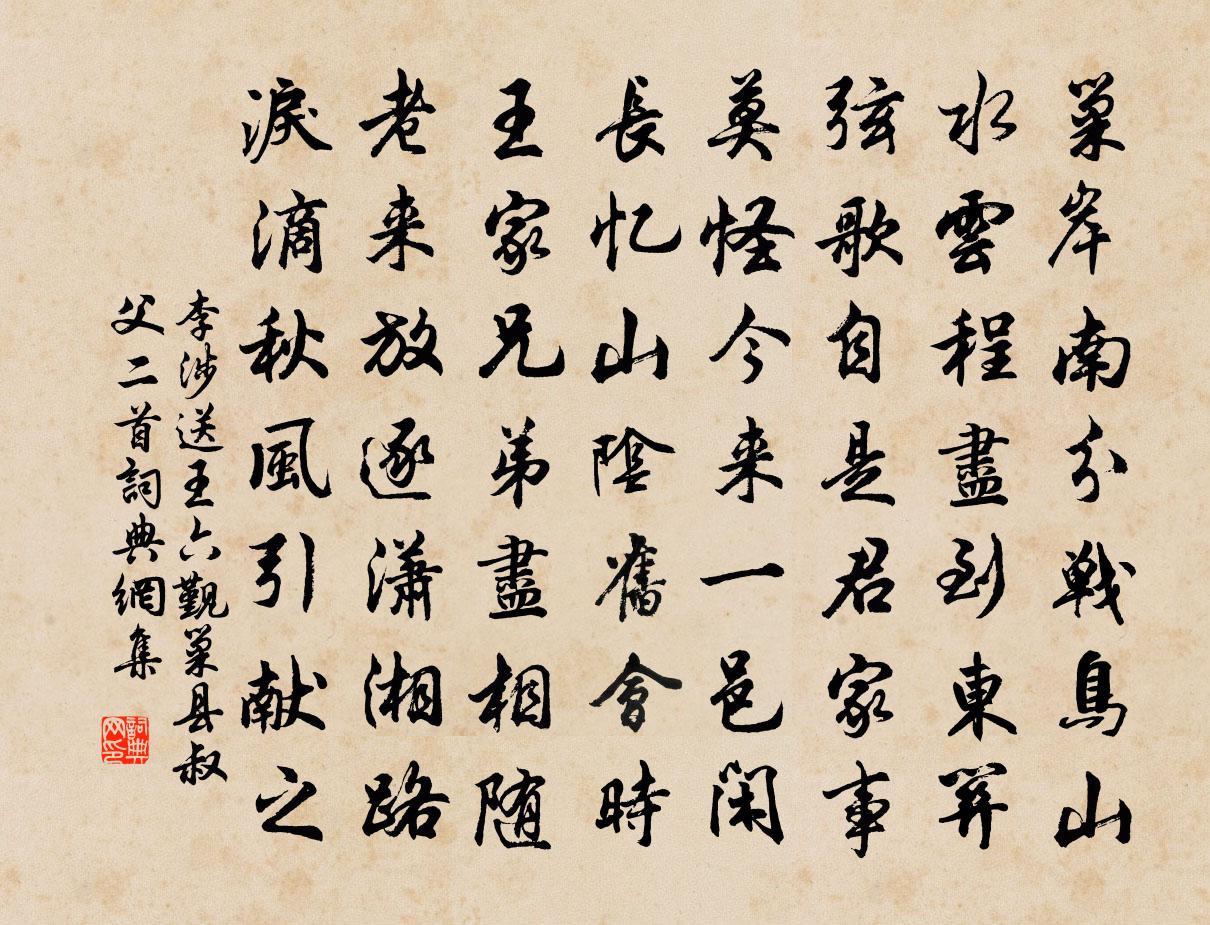 巢岸南分戦鳥山
水雲程盡到東關
弦歌自是君家事
莫怪今来一邑閑
長忆山陰舊會時
王家兄弟盡相随
老来放逐瀟湘路
淚滴秋風引献之
李涉送王六觐巢县叔
父二首詞典網集
詞典网印